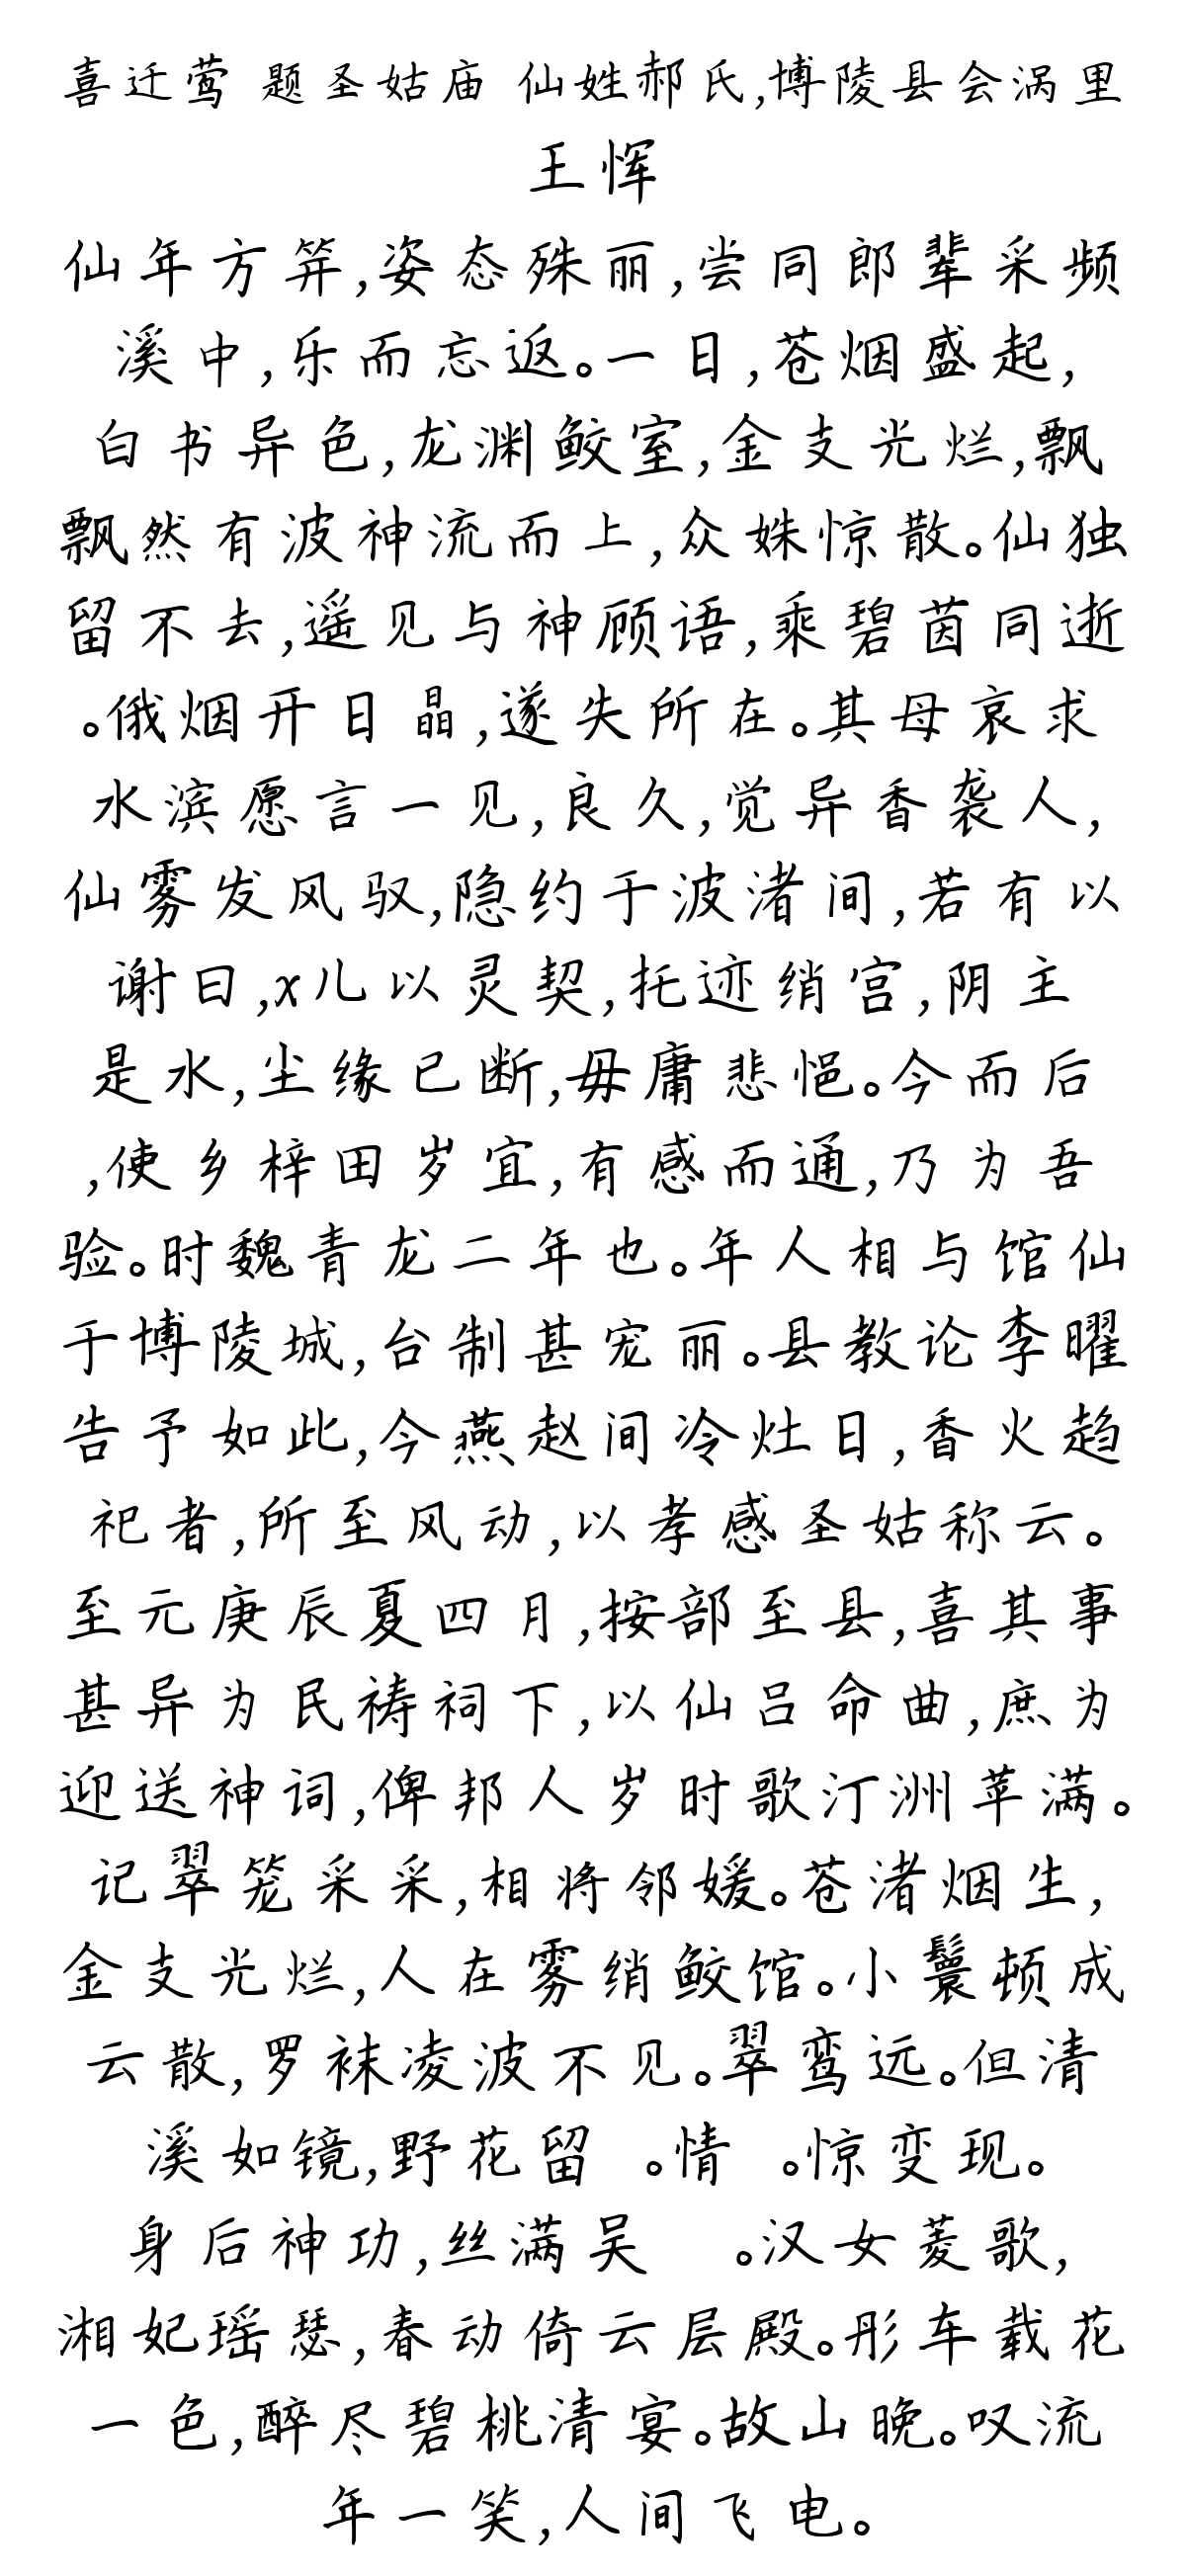 喜迁莺 题圣姑庙 仙姓郝氏,博陵县会涡里
王恽
仙年方笄,姿态殊丽,尝同郎辈采频
溪中,乐而忘返。一日,苍烟盛起,
白书异色,龙渊鲛室,金支光烂,飘
飘然有波神流而上,众姝惊散。仙独
留不去,遥见与神顾语,乘碧茵同逝
。俄烟开日晶,遂失所在。其母哀求
水滨愿言一见,良久,觉异香袭人,
仙雾发风驭,隐约于波渚间,若有以
谢曰,x儿以灵契,托迹绡宫,阴主
是水,尘缘已断,毋庸悲悒。今而后
,使乡梓田岁宜,有感而通,乃为吾
验。时魏青龙二年也。年人相与馆仙
于博陵城,台制甚宠丽。县教论李曜
告予如此,今燕赵间冷灶日,香火趋
祀者,所至风动,以孝感圣姑称云。
至元庚辰夏四月,按部至县,喜其事
甚异为民祷祠下,以仙吕命曲,庶为
迎送神词,俾邦人岁时歌汀洲苹满。
记翠笼采采,相将邻媛。苍渚烟生,
金支光烂,人在雾绡鲛馆。小鬟顿成
云散,罗袜凌波不见。翠鸾远。但清
溪如镜,野花留 。情 。惊变现。
身后神功,丝满吴 。汉女菱歌,
湘妃瑶瑟,春动倚云层殿。彤车载花
一色,醉尽碧桃清宴。故山晚。叹流
年一笑,人间飞电。